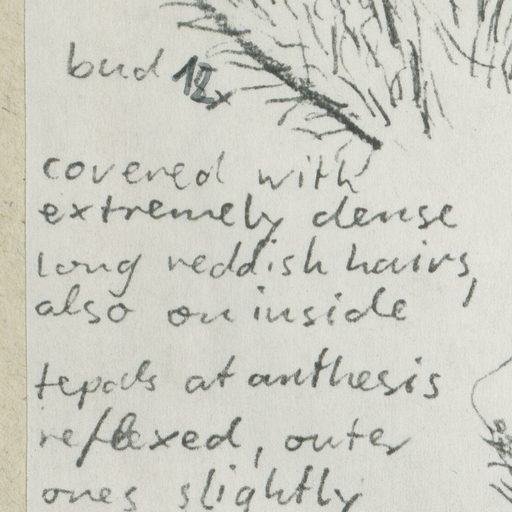 bud 12x
covered with
extremely dense
long reddish hairs,
also on inside
tepals at anthesis
reflexed, outer
ones slightly